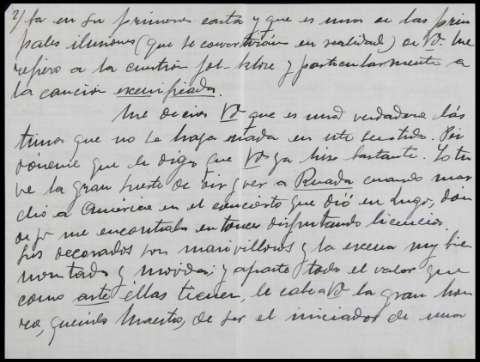 y fa en su primera carta y que es una de las prin
pales ilusiones (que se convertirán en realidad) de Vd. Me
refiero a la cuestión folklore y particularmente a
la canción escenificada.
Me decía Vd que es una verdadera lás
tima que no se haga nada en este sentido. Per
dóneme que le diga que Vd ya hizo bastante. Yo tu
ve la gran suerte de oir y ver a Ruada cuando mar
chó a América en el concierto que dió en Lugo, don
de yo me encontraba entonces disfrutando licencia.
Los decorados son maravillosos y la escena muy bien
montada y movida; y aparte todo el valor que
como arte éllas tienen, le cabe a Vd la gran hon
ra, querido Maestro, de ser el iniciador de una